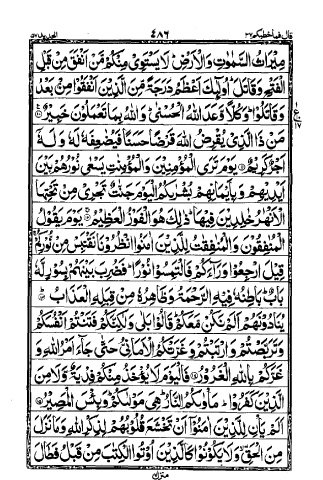 قال فما خطبكم ٢٧ ٤٨٦ الحديد ٥٧
مِيْرَاثُ السَّمٰوٰتِ وَالْاَرْضِ لَا يَسْتَوِيْ مِنْكُمْ مَّنْ اَنْفَقَ مِنْ قَبْلِ
الْفَتْحِ وَقٰتَلَ اُولٰٓئِكَ اَعْظَمُ دَرَجَةً مِّنَ الَّذِيْنَ اَنْفَقُوْا مِنْۢ بَعْدُ
وَقٰتَلُوْا وَكُلًّا وَّعَدَ اللّٰهُ الْحُسْنٰى وَاللّٰهُ بِمَا تَعْمَلُوْنَ خَبِيْرٌ
مَنْ ذَا الَّذِيْ يُقْرِضُ اللّٰهَ قَرْضًا حَسَنًا فَيُضٰعِفَهٗ لَهٗ وَلَهٗٓ
اَجْرٌ كَرِيْمٌ يَوْمَ تَرَى الْمُؤْمِنِيْنَ وَالْمُؤْمِنٰتِ يَسْعٰى نُوْرُهُمْ بَيْنَ
اَيْدِيْهِمْ وَبِاَيْمَانِهِمْ بُشْرٰىكُمُ الْيَوْمَ جَنّٰتٌ تَجْرِيْ مِنْ تَحْتِهَا
الْاَنْهٰرُ خٰلِدِيْنَ فِيْهَا ذٰلِكَ هُوَ الْفَوْزُ الْعَظِيْمُ يَوْمَ يَقُوْلُ
الْمُنٰفِقُوْنَ وَالْمُنٰفِقٰتُ لِلَّذِيْنَ اٰمَنُوا انْظُرُوْنَا نَقْتَبِسْ مِنْ نُّوْرِكُمْ
قِيْلَ ارْجِعُوْا وَرَآءَكُمْ فَالْتَمِسُوْا نُوْرًا فَضُرِبَ بَيْنَهُمْ بِسُوْرٍ لَّهٗ
بَابٌ بَاطِنُهٗ فِيْهِ الرَّحْمَةُ وَظَاهِرُهٗ مِنْ قِبَلِهِ الْعَذَابُ
يُنَادُوْنَهُمْ اَلَمْ نَكُنْ مَّعَكُمْ قَالُوْا بَلٰى وَلٰكِنَّكُمْ فَتَنْتُمْ اَنْفُسَكُمْ
وَتَرَبَّصْتُمْ وَارْتَبْتُمْ وَغَرَّتْكُمُ الْاَمَانِيُّ حَتّٰى جَآءَ اَمْرُ اللّٰهِ وَ
غَرَّكُمْ بِاللّٰهِ الْغَرُوْرُ فَالْيَوْمَ لَا يُؤْخَذُ مِنْكُمْ فِدْيَةٌ وَّلَا مِنَ
الَّذِيْنَ كَفَرُوْا مَاْوٰىكُمُ النَّارُ هِيَ مَوْلٰىكُمْ وَبِئْسَ الْمَصِيْرُ
اَلَمْ يَاْنِ لِلَّذِيْنَ اٰمَنُوْٓا اَنْ تَخْشَعَ قُلُوْبُهُمْ لِذِكْرِ اللّٰهِ وَمَا نَزَلَ
مِنَ الْحَقِّ وَلَا يَكُوْنُوْا كَالَّذِيْنَ اُوْتُوا الْكِتٰبَ مِنْ قَبْلُ فَطَالَ